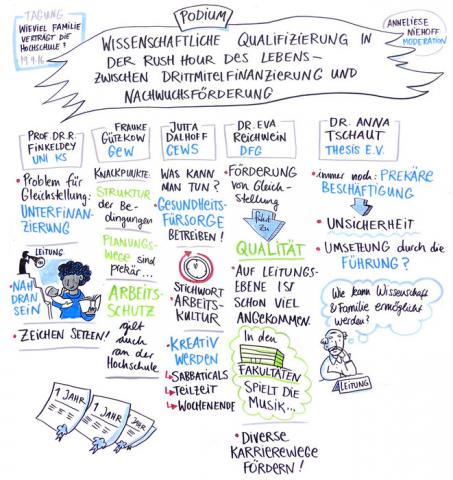 TAGUNG
WIEVIEL FAMILIE
VERTRÄGT DIE
HOCHSCHULE?
19.9.16
PODIUM
WISSENSCHAFTLICHE QUALIFIZIERUNG IN
DER RUSH HOUR DES LEBENS –
ZWISCHEN DRITTMITELFINANZIERUNG UND
NACHWUCHSFÖRDERUNG
ANNELIESE
NIEHOFF
MODERATION
PROF. DR. R.
FINKELDEY
UNI KS
• Problem für
Gleichstellung:
UNTERFINAN-
ZIERUNG
LEITUNG
• NAH
DRAN
SEIN
• ZEICHEN SETZEN!
1 JAHR
1 JAHR
JAHR
FRAUKE
GÜTZKOW
GEW
KNACKPUNKTE:
STRUKTUR
der Be-
dingungen
PLANUNGS-
WEGE sind
prekär...
ARBEITS-
SCHUTZ
gilt
auch
an der
Hochschule
JUTTA
DALHOFF
CEWS
WAS KANN
MAN TUN?
• GESUNDHEITS-
FÜRSORGE
BETREIBEN!
STICHWORT
• ARBEITS-
KULTUR
• KREATIV
WERDEN
↳ SABBATICALS
↳ TEILZEIT
↳ WOCHENENDE
DR. EVA
REICHWEIN
DFG
• FÖRDERUNG
von Gleich-
stellung
führt zu
QUALITÄT
• AUF LEITUNGS-
EBENE IST
SCHON VIEL
ANGEKOMMEN.
In den
FAKULTÄTEN
SPIELT DIE
MUSIK...
• DIVERSE
KARRIEREWEGE
FÖRDERN!
DR. ANNA
TSCHAUT
THESIS E.V.
• immer noch: PREKÄRE
BESCHÄFTIGUNG
UNSICHERHEIT
• UMSETZUNG durch die
FÜHRUNG?
Wie kann Wissenschaft
& Familie ermöglicht
werden?
LEITUNG